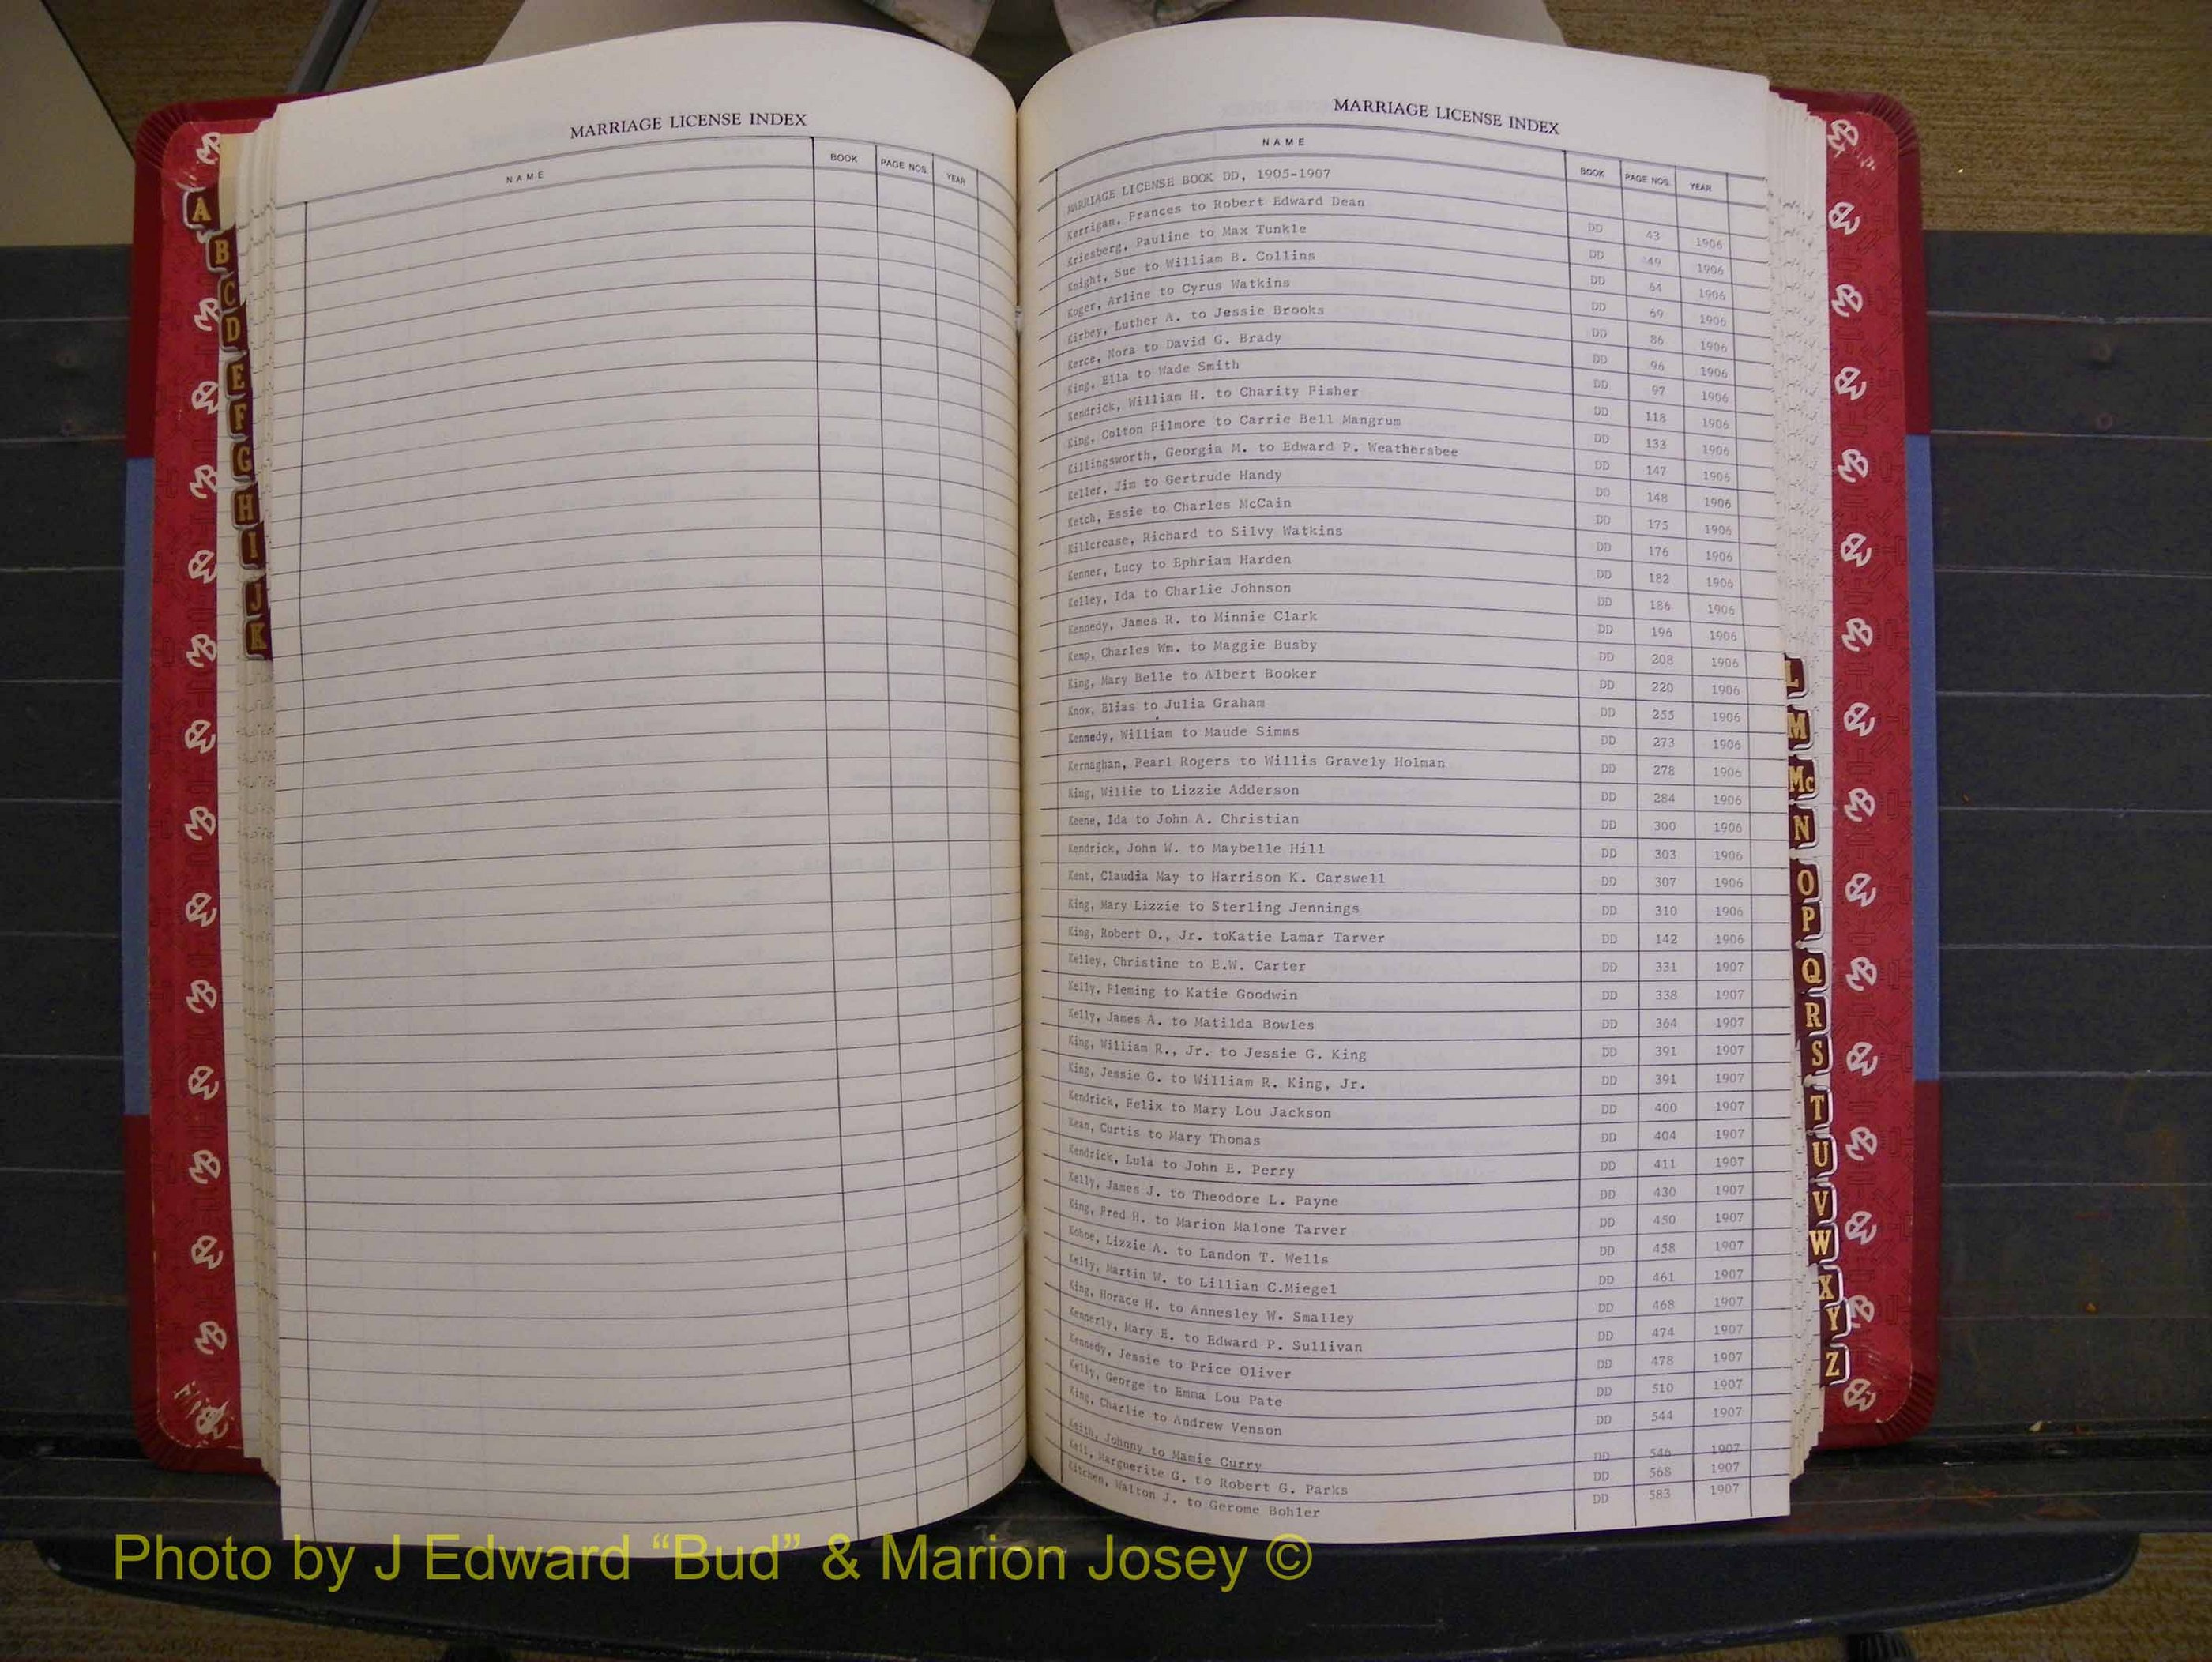 MARRIAGE LICENSE INDEX
NAME BOOK PAGE NOS. YEAR
A
B
C
D
E
F
G
H
I
J
K
MARRIAGE LICENSE INDEX
NAME BOOK PAGE NOS. YEAR
MARRIAGE LICENSE BOOK DD, 1905-1907
Kerrigan, Frances to Robert Edward Dean DD 43 1906
Kriesberg, Pauline to Max Tunkle DD 49 1906
Knight, Sue to William B. Collins DD 64 1906
Koger, Arline to Cyrus Watkins DD 69 1906
Kirbey, Luther A. to Jessie Brooks DD 86 1906
Kerce, Nora to David G. Brady DD 96 1906
King, Ella to Wade Smith DD 97 1906
Kendrick, William H. to Charity Fisher DD 118 1906
King, Colton Filmore to Carrie Bell Mangrum DD 133 1906
Killingsworth, Georgia M. to Edward P. Weathersbee DD 147 1906
Keller, Jim to Gertrude Handy DD 148 1906
Ketch, Essie to Charles McCain DD 175 1906
Killcrease, Richard to Silvy Watkins DD 176 1906
Kenner, Lucy to Ephriam Harden DD 182 1906
Kelley, Ida to Charlie Johnson DD 186 1906
Kennedy, James R. to Minnie Clark DD 196 1906
Kemp, Charles Wm. to Maggie Busby DD 208 1906
King, Mary Belle to Albert Booker DD 220 1906
Knox, Elias to Julia Graham DD 255 1906
Kennedy, William to Maude Simms DD 273 1906
Kernaghan, Pearl Rogers to Willis Gravely Holman DD 278 1906
King, Willie to Lizzie Adderson DD 284 1906
Keene, Ida to John A. Christian DD 300 1906
Kendrick, John W. to Maybelle Hill DD 303 1906
Kent, Claudia May to Harrison K. Carswell DD 307 1906
King, Mary Lizzie to Sterling Jennings DD 310 1906
King, Robert O., Jr. toKatie Lamar Tarver DD 142 1906
Kelley, Christine to E.W. Carter DD 331 1907
Kelly, Fleming to Katie Goodwin DD 338 1907
Kelly, James A. to Matilda Bowles DD 364 1907
King, William R., Jr. to Jessie G. King DD 391 1907
King, Jessie G. to William R. King, Jr. DD 391 1907
Kendrick, Felix to Mary Lou Jackson DD 400 1907
Kean, Curtis to Mary Thomas DD 404 1907
Kendrick, Lula to John E. Perry DD 411 1907
Kelly, James J. to Theodore L. Payne DD 430 1907
King, Fred H. to Marion Malone Tarver DD 450 1907
Kohoe, Lizzie A. to Landon T. Wells DD 458 1907
Kelly, Martin W. to Lillian C.Miegel DD 461 1907
King, Horace H. to Annesley W. Smalley DD 468 1907
Kennerly, Mary E. to Edward P. Sullivan DD 474 1907
Kennedy, Jessie to Price Oliver DD 478 1907
Kelly, George to Emma Lou Pate DD 510 1907
King, Charlie to Andrew Venson DD 544 1907
Keith, Johnny to Mamie Curry DD 546 1907
Kell, Marguerite G. to Robert G. Parks DD 568 1907
Kitchen, Walton J. to Gerome Bohler DD 583 1907
L
M
Mc
N
O
P
Q
R
S
T
U
V
W
X
Y
Z
Photo by J Edward “Bud” & Marion Josey ©